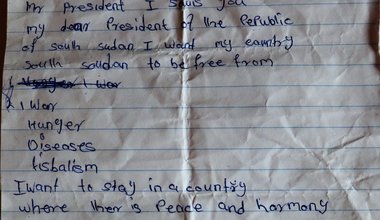 Mr President I
you
my dear President of the Republic
of south sudan I want my country
south soudan to be free from
1 war
Hunger
Diseases
tisbalism
I want to stay in a country
where ther is Peace and harmony